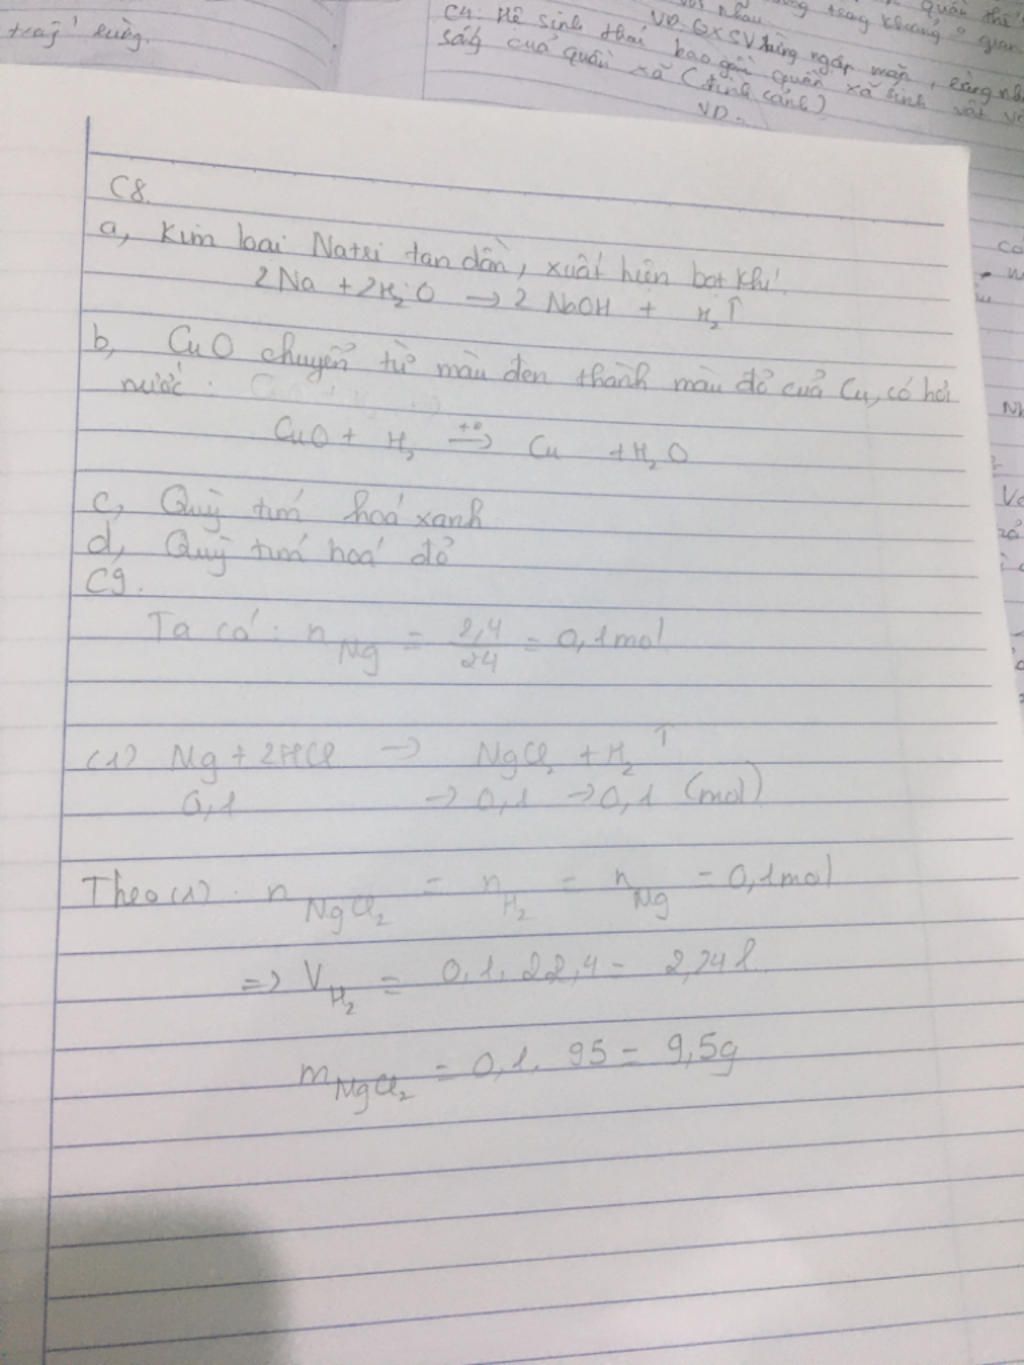 trag' riêng.
C4. Hệ sinh thái bao gồm quần xã sinh vật
sống của quần xã (sinh cảnh)
VD.
C8.
a, Kim loại Natri tan dần, xuất hiện bọt khí.
2Na + 2H₂O → 2 NaOH + H₂↑
b, CuO chuyển từ màu đen thành màu đỏ của Cu, có hơi
nước.
CuO + H₂ →(t°) Cu + H₂O
c, Quỳ tím hoá xanh
d, Quỳ tím hoá đỏ
C9.
Ta có: n Mg = 2,4/24 = 0,1mol
(1) Mg + 2HCl → MgCl₂ + H₂↑
0,1 → 0,1 → 0,1 (mol)
Theo (1): n MgCl₂ = n H₂ = n Mg = 0,1mol
=> V H₂ = 0,1. 22,4 = 2,24l
m MgCl₂ = 0,1. 95 = 9,5g